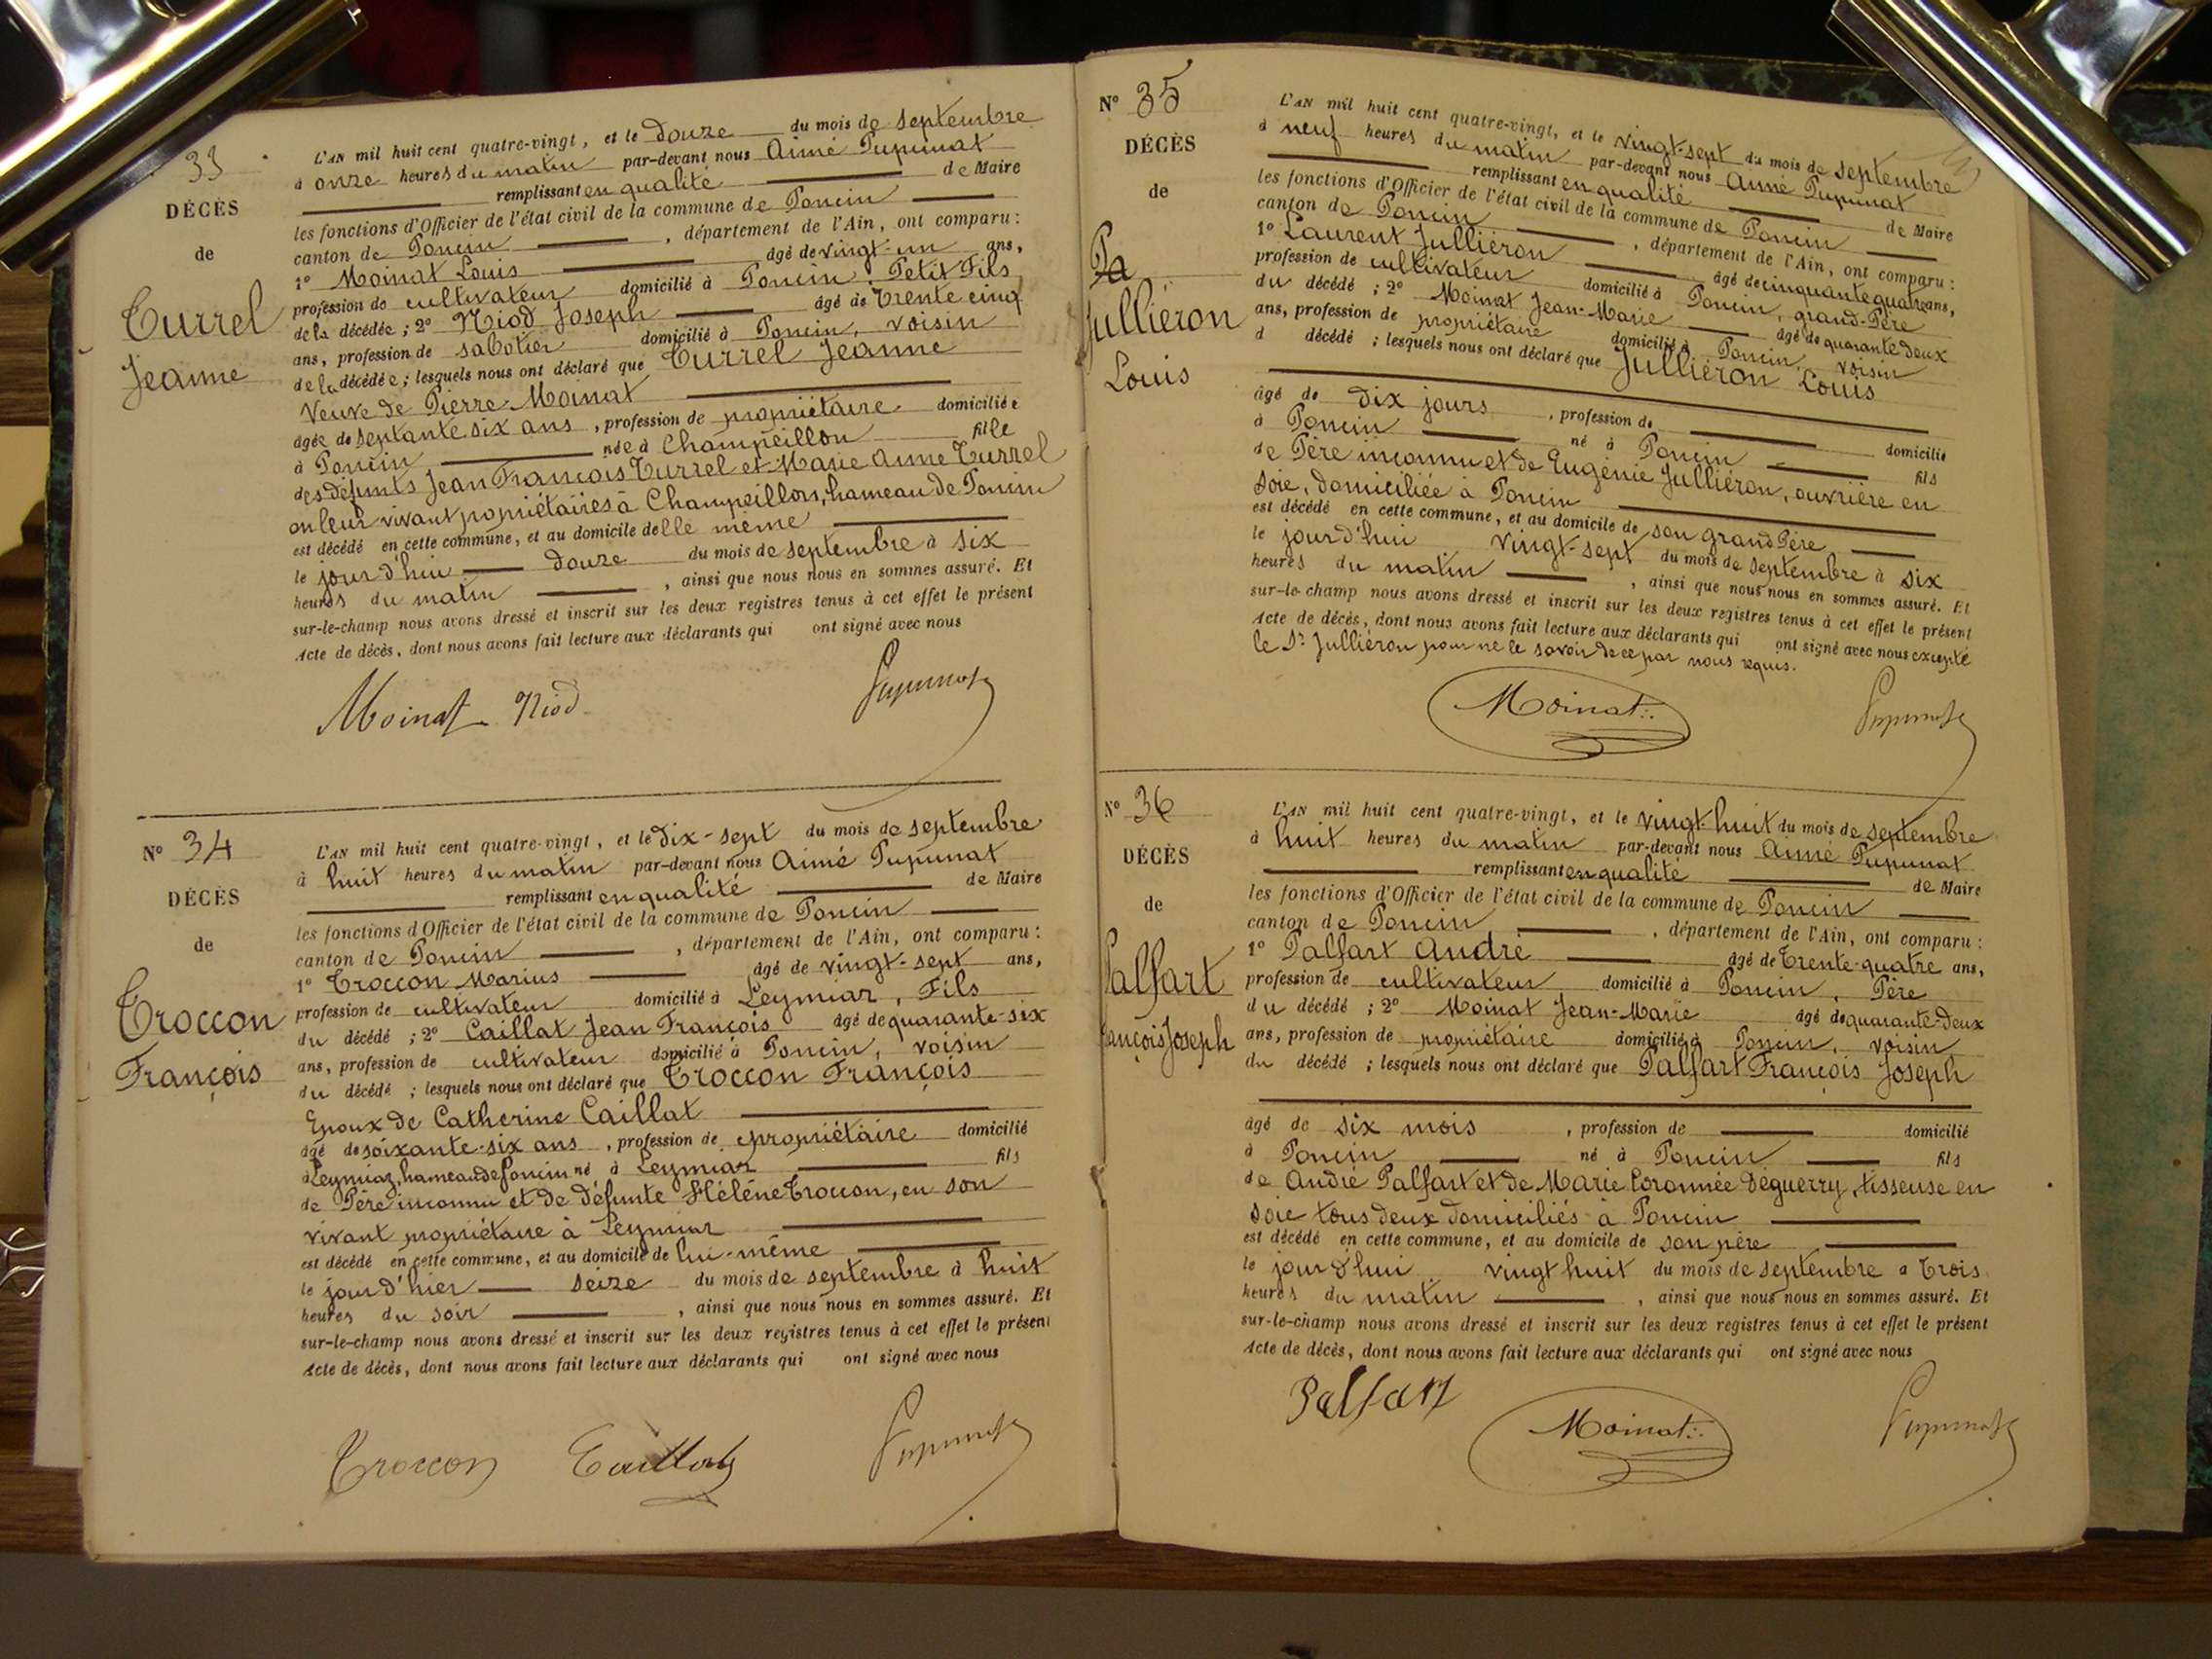 33
DÉCÈS
de
Turrel
Jeanne
L'AN mil huit cent quatre-vingt, et le douze du mois de septembre
à onze heures du matin par-devant nous Aimé Pupunat
remplissant en qualité de Maire
les fonctions d'Officier de l'état civil de la commune de Poncin
canton de Poncin, département de l'Ain, ont comparu :
1° Moinat Louis âgé de vingt-un ans,
profession de cultivateur domicilié à Poncin, Petit Fils
de la décédée ; 2° Niod Joseph âgé de Trente cinq
ans, profession de sabotier domicilié à Poncin, voisin
de la décédée ; lesquels nous ont déclaré que Turrel Jeanne
Veuve de Pierre Moinat
âgée de septante six ans, profession de propriétaire domiciliée
à Poncin née à Champeillon fille
des défunts Jean François Turrel et Marie Anne Turrel
en leur vivant propriétaires à Champeillon, hameau de Poncin
est décédé en cette commune, et au domicile delle même
le jour d'hui douze du mois de septembre à six
heures du matin, ainsi que nous nous en sommes assuré. Et
sur-le-champ nous avons dressé et inscrit sur les deux registres tenus à cet effet le présent
Acte de décès, dont nous avons fait lecture aux déclarants qui ont signé avec nous
Moinat Niod Pupunat
N° 34
DÉCÈS
de
Troccon
François
L'AN mil huit cent quatre-vingt, et le dix-sept du mois de septembre
à huit heures du matin par-devant nous Aimé Pupunat
remplissant en qualité de Maire
les fonctions d'Officier de l'état civil de la commune de Poncin
canton de Poncin, département de l'Ain, ont comparu :
1° Troccon Marius âgé de vingt-sept ans,
profession de cultivateur domicilié à Leymiaz, Fils
du décédé ; 2° Caillat Jean François âgé de quarante-six
ans, profession de cultivateur domicilié à Poncin, voisin
du décédé ; lesquels nous ont déclaré que Troccon François
Epoux de Catherine Caillat
âgé de soixante-six ans, profession de propriétaire domicilié
à Leymiaz, hameau de Poncin né à Leymiaz fils
de Père inconnu et de défunte Hélène Troccon, en son
vivant propriétaire à Leymiaz
est décédé en cette commune, et au domicile de lui-même
le jour d'hier seize du mois de septembre à huit
heures du soir, ainsi que nous nous en sommes assuré. Et
sur-le-champ nous avons dressé et inscrit sur les deux registres tenus à cet effet le présent
Acte de décès, dont nous avons fait lecture aux déclarants qui ont signé avec nous
Troccon Caillat Pupunat
N° 35
DÉCÈS
de
Pa
Julliéron
Louis
L'AN mil huit cent quatre-vingt, et le vingt-sept du mois de septembre
à neuf heures du matin par-devant nous Aimé Pupunat
remplissant en qualité de Maire
les fonctions d'Officier de l'état civil de la commune de Poncin
canton de Poncin, département de l'Ain, ont comparu :
1° Laurent Julliéron âgé de cinquante quatre ans,
profession de cultivateur domicilié à Poncin, grand-Père
du décédé ; 2° Moinat Jean-Marie âgé de quarante deux
ans, profession de propriétaire domicilié à Poncin, voisin
d décédé ; lesquels nous ont déclaré que Julliéron Louis
âgé de dix jours, profession de domicilié
à Poncin né à Poncin fils
de Père inconnu et de Eugénie Julliéron, ouvrière en
soie, domiciliée à Poncin
est décédé en cette commune, et au domicile de son grand Père
le jour d'hui vingt-sept du mois de septembre à six
heures du matin, ainsi que nous nous en sommes assuré. Et
sur-le-champ nous avons dressé et inscrit sur les deux registres tenus à cet effet le présent
Acte de décès, dont nous avons fait lecture aux déclarants qui ont signé avec nous excepté
le Sr Julliéron pour ne le savoir de ce par nous requis.
Moinat Pupunat
N° 36
DÉCÈS
de
Palfart
ançois Joseph
L'AN mil huit cent quatre-vingt, et le vingt-huit du mois de septembre
à huit heures du matin par-devant nous Aimé Pupunat
remplissant en qualité de Maire
les fonctions d'Officier de l'état civil de la commune de Poncin
canton de Poncin, département de l'Ain, ont comparu :
1° Palfart André âgé de Trente-quatre ans,
profession de cultivateur domicilié à Poncin, Père
du décédé ; 2° Moinat Jean-Marie âgé de quarante-deux
ans, profession de propriétaire domicilié à Poncin, voisin
du décédé ; lesquels nous ont déclaré que Palfart François Joseph
âgé de six mois, profession de domicilié
à Poncin né à Poncin fils
de André Palfart et de Marie Coronnée Déguerry, tisseuse en
soie tous deux domiciliés à Poncin
est décédé en cette commune, et au domicile de son père
le jour d'hui vingt huit du mois de septembre à Trois
heures du matin, ainsi que nous nous en sommes assuré. Et
sur-le-champ nous avons dressé et inscrit sur les deux registres tenus à cet effet le présent
Acte de décès, dont nous avons fait lecture aux déclarants qui ont signé avec nous
Palfart Moinat Pupunat